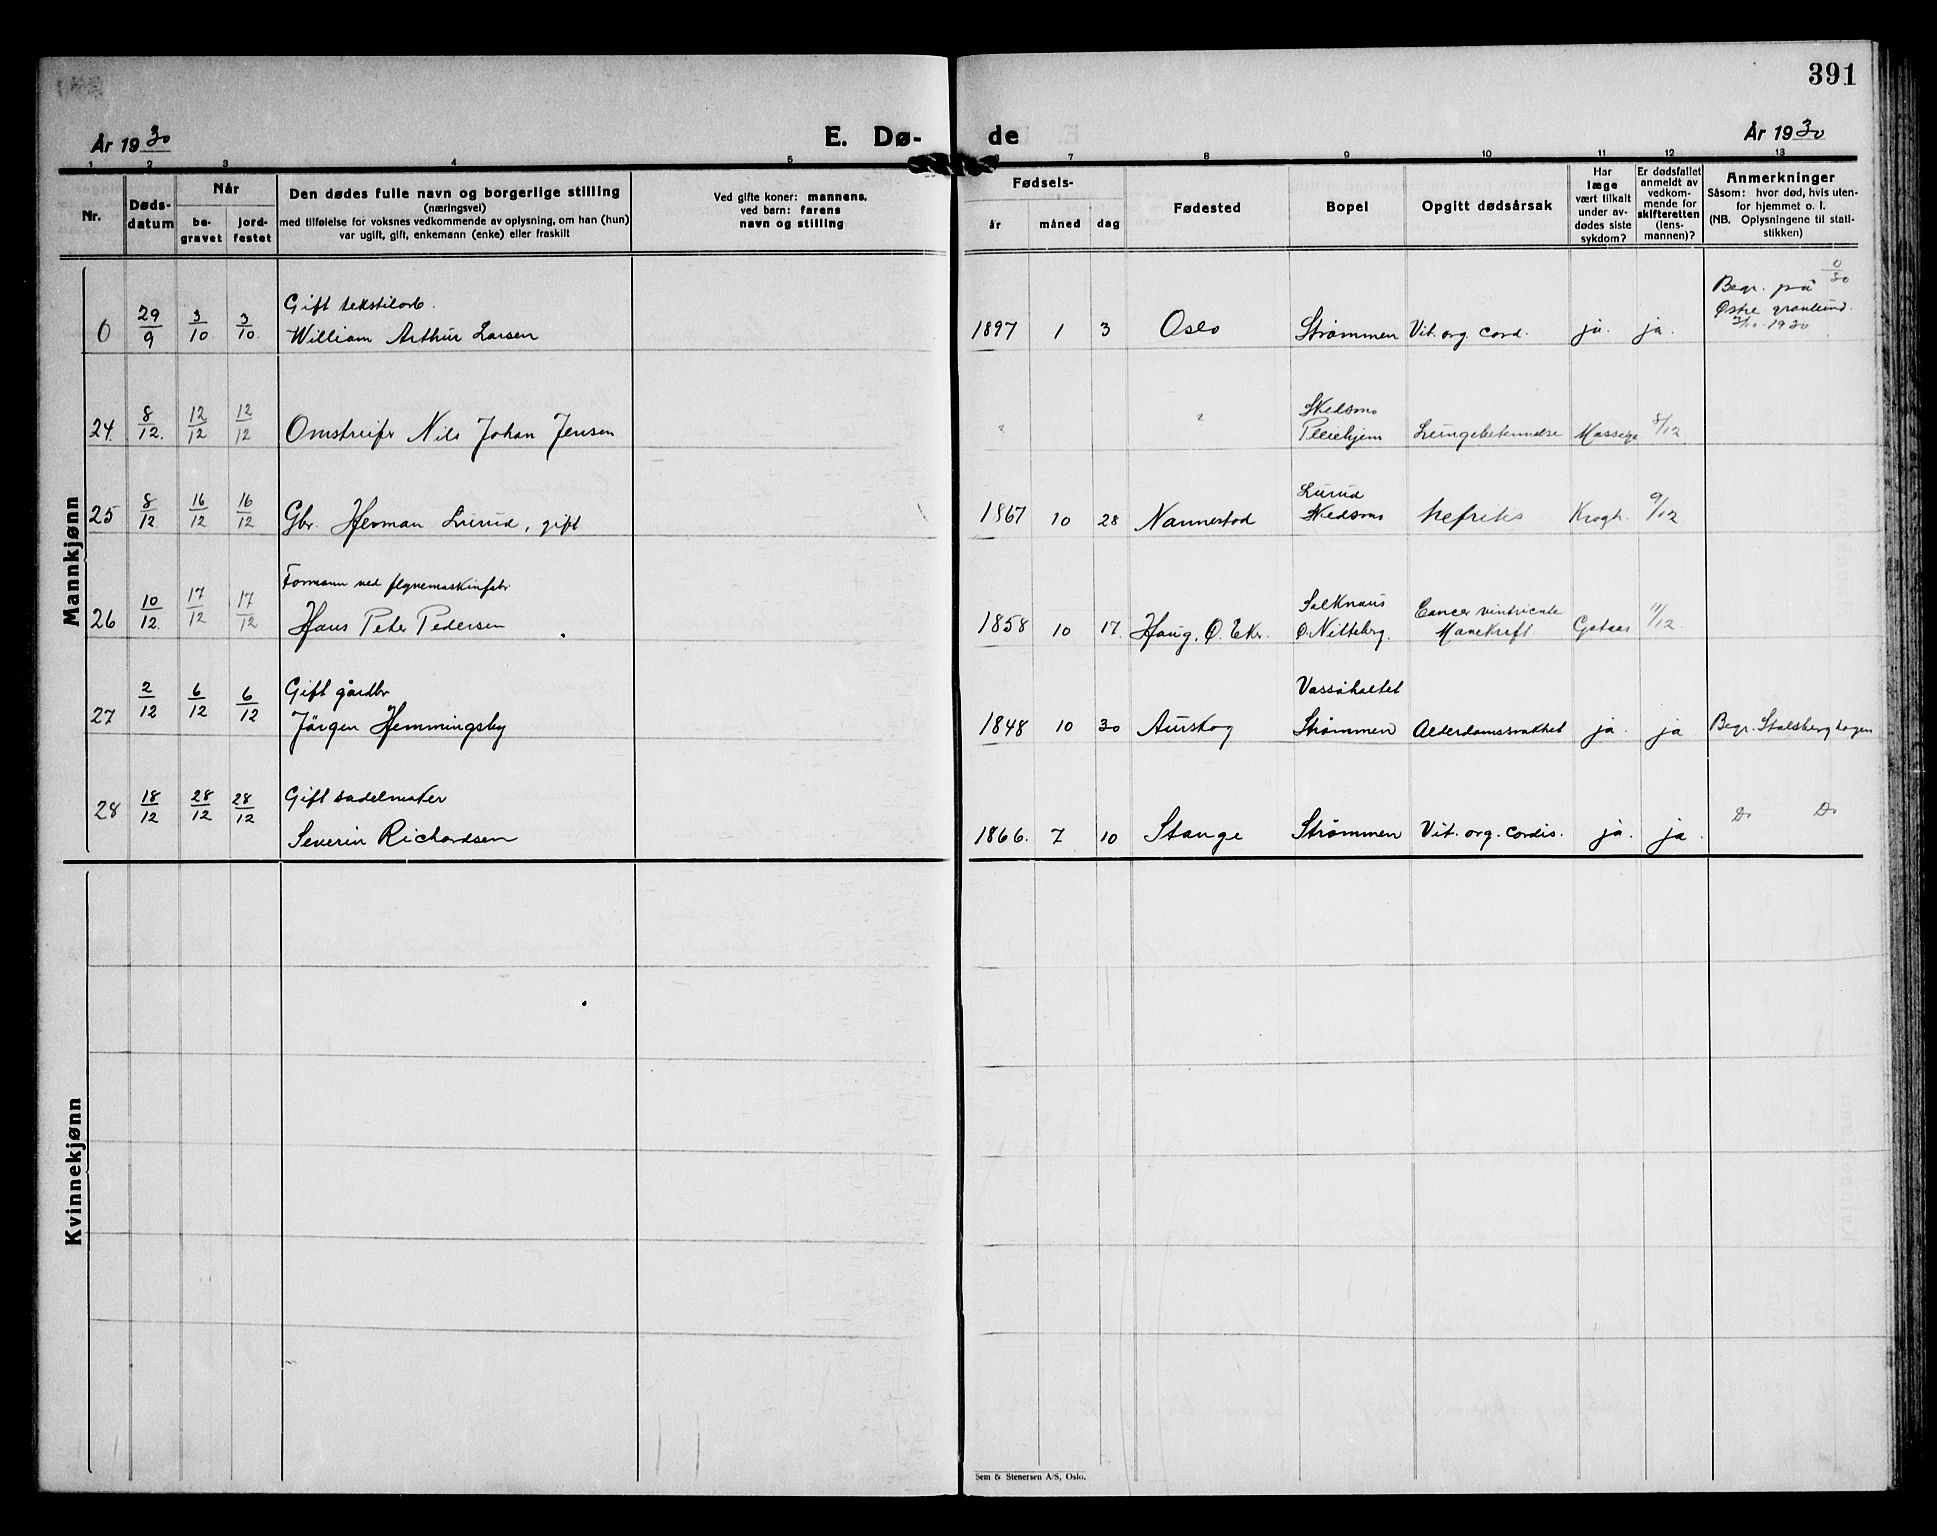 391
År 1930
E. Dø-
de
År 1930
1 2 3 4 5 6 7 8 9 10 11 12 13
Nr.
Døds-
datum
Når
be-
gravet
jord-
festet
Den dødes fulle navn og borgerlige stilling
(næringsvei)
med tilføielse for voksnes vedkommende av oplysning, om han (hun)
var ugift, gift, enkemann (enke) eller fraskilt
Ved gifte koner: mannens,
ved barn: farens
navn og stilling
Fødsels-
år måned dag
Fødested
Bopel
Opgitt dødsårsak
Har
læge
vært tilkalt
under av-
dødes siste
sykdom?
Er dødsfallet
anmeldt av
vedkom-
mende for
skifteretten
(lens-
mannen)?
Anmerkninger
Såsom: hvor død, hvis uten-
for hjemmet o. l.
(NB. Oplysningene til stati-
stikken)
Mannkjønn
0/30
Gift tekstilarb.
0 29/9 3/10 3/10 William Arthur Larsen 1897 1 3 Oslo Strømmen Vit. org. cord. ja. ja. Begr. på
Østre gravlund
3/10-1930
Skedsmo
24. 8/12. 12/12 12/12 Omstreifer Nils Johan Jensen ? ? Pleiehjem Lungebetennelse 8/12
Lurud
25 8/12 16/12 16/12 Gbr. Herman Lurud, gift 1867 10 28 Nannestad Skedsmo Nefritis Krogh. 9/12
Formann ved flyvemaskinfabr
26 10/12. 17/12 17/12 Hans Peter Pedersen 1858 10 17. Haug, Ø. Eker. Ø. Nitteberg. Cancer ventricule
Mavekreft 11/12.
Gift gårdbr
27 2/12 6/12 6/12 Jörgen Hemmingsby 1848 10 30 Aurskog Strømmen Alderdomssvakhet ja. ja Begr. Stalsberghagen
Gift sadelmaker
28 18/12 28/12 28/12 Severin Richardsen 1866. 7 10 Stange Strømmen Vit. org. cordis. ja. ja. Do Do
Kvinnekjønn
Sem & Stenersen A/S, Oslo.